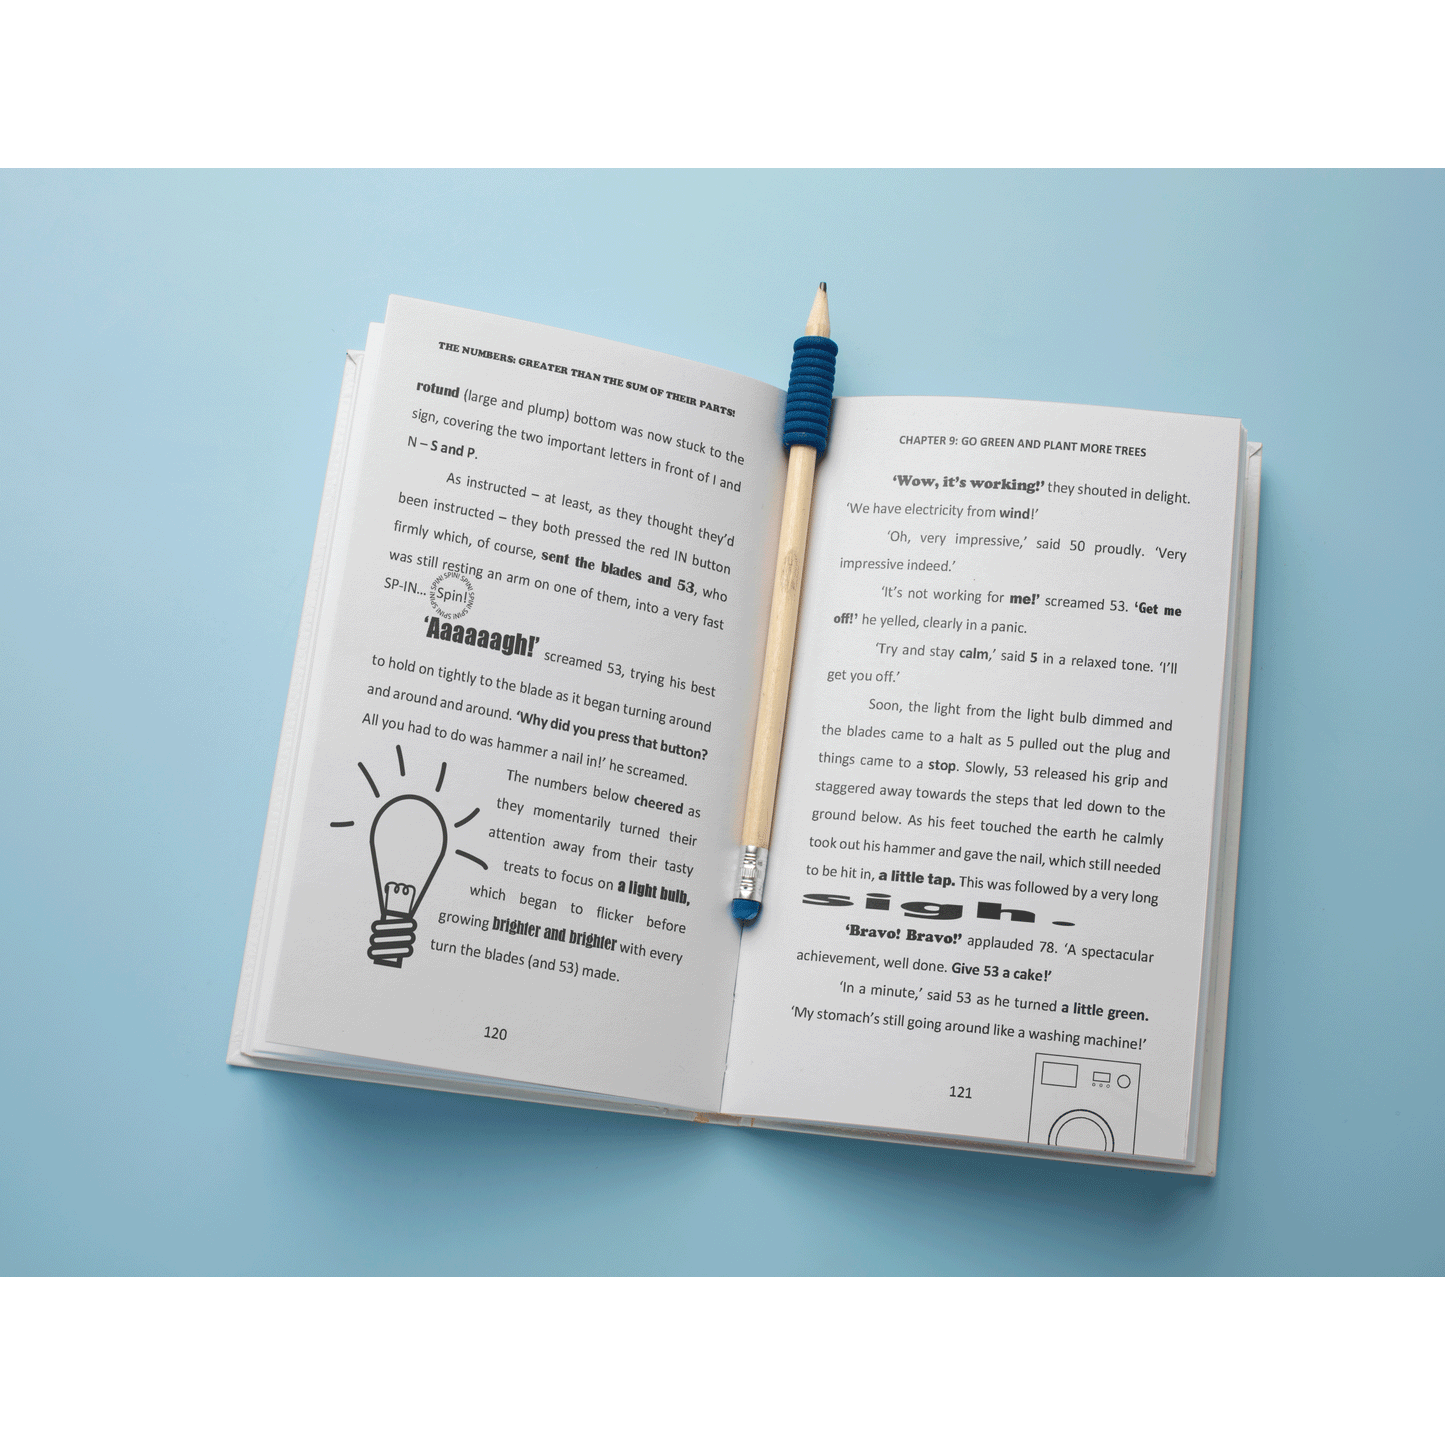 THE NUMBERS: GREATER THAN THE SUM OF THEIR PARTS!
rotund (large and plump) bottom was now stuck to the
sign, covering the two important letters in front of I and
N – S and P.
As instructed – at least, as they thought they’d
been instructed – they both pressed the red IN button
firmly which, of course, sent the blades and 53, who
was still resting an arm on one of them, into a very fast
SP-IN... Spin!
SPIN! SPIN! SPIN! SPIN! SPIN! SPIN! SPIN!
‘Aaaaaagh!’ screamed 53, trying his best
to hold on tightly to the blade as it began turning around
and around and around. ‘Why did you press that button?
All you had to do was hammer a nail in!’ he screamed.
The numbers below cheered as
they momentarily turned their
attention away from their tasty
treats to focus on a light bulb,
which began to flicker before
growing brighter and brighter with every
turn the blades (and 53) made.
120
CHAPTER 9: GO GREEN AND PLANT MORE TREES
‘Wow, it’s working!’ they shouted in delight.
‘We have electricity from wind!’
‘Oh, very impressive,’ said 50 proudly. ‘Very
impressive indeed.’
‘It’s not working for me!’ screamed 53. ‘Get me
off!’ he yelled, clearly in a panic.
‘Try and stay calm,’ said 5 in a relaxed tone. ‘I’ll
get you off.’
Soon, the light from the light bulb dimmed and
the blades came to a halt as 5 pulled out the plug and
things came to a stop. Slowly, 53 released his grip and
staggered away towards the steps that led down to the
ground below. As his feet touched the earth he calmly
took out his hammer and gave the nail, which still needed
to be hit in, a little tap. This was followed by a very long
sigh.
‘Bravo! Bravo!’ applauded 78. ‘A spectacular
achievement, well done. Give 53 a cake!’
‘In a minute,’ said 53 as he turned a little green.
‘My stomach’s still going around like a washing machine!’
121